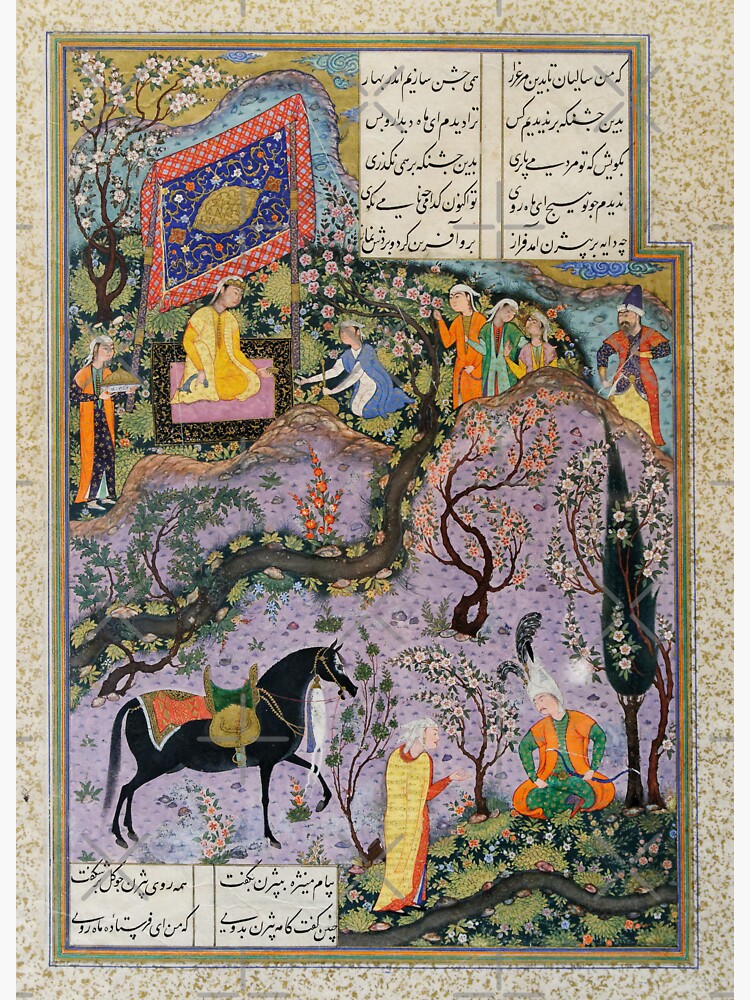 که من سالیان تا بدین مرغزار همی جشن سازیم اندر بهار
بدین جشنکه بر ندیدیم کس ترا دیدم ای ماه دیدار و بس
بکویش که تو مردمی یا پری بدین جشنکه بر همی بگذری
ندیدم چو تو هیچ ای ماه روی تو اکنون کدامی چه نامی بکوی
چه دایه بر بیژن آمد فراز برو آفرین کرد و بردش نماز
پیام منیژه به بیژن بگفت همه روی بیژن چو گل بر شکفت
چنین گفت کامه بیژن بدوی که من ای فرستاده ماه روی